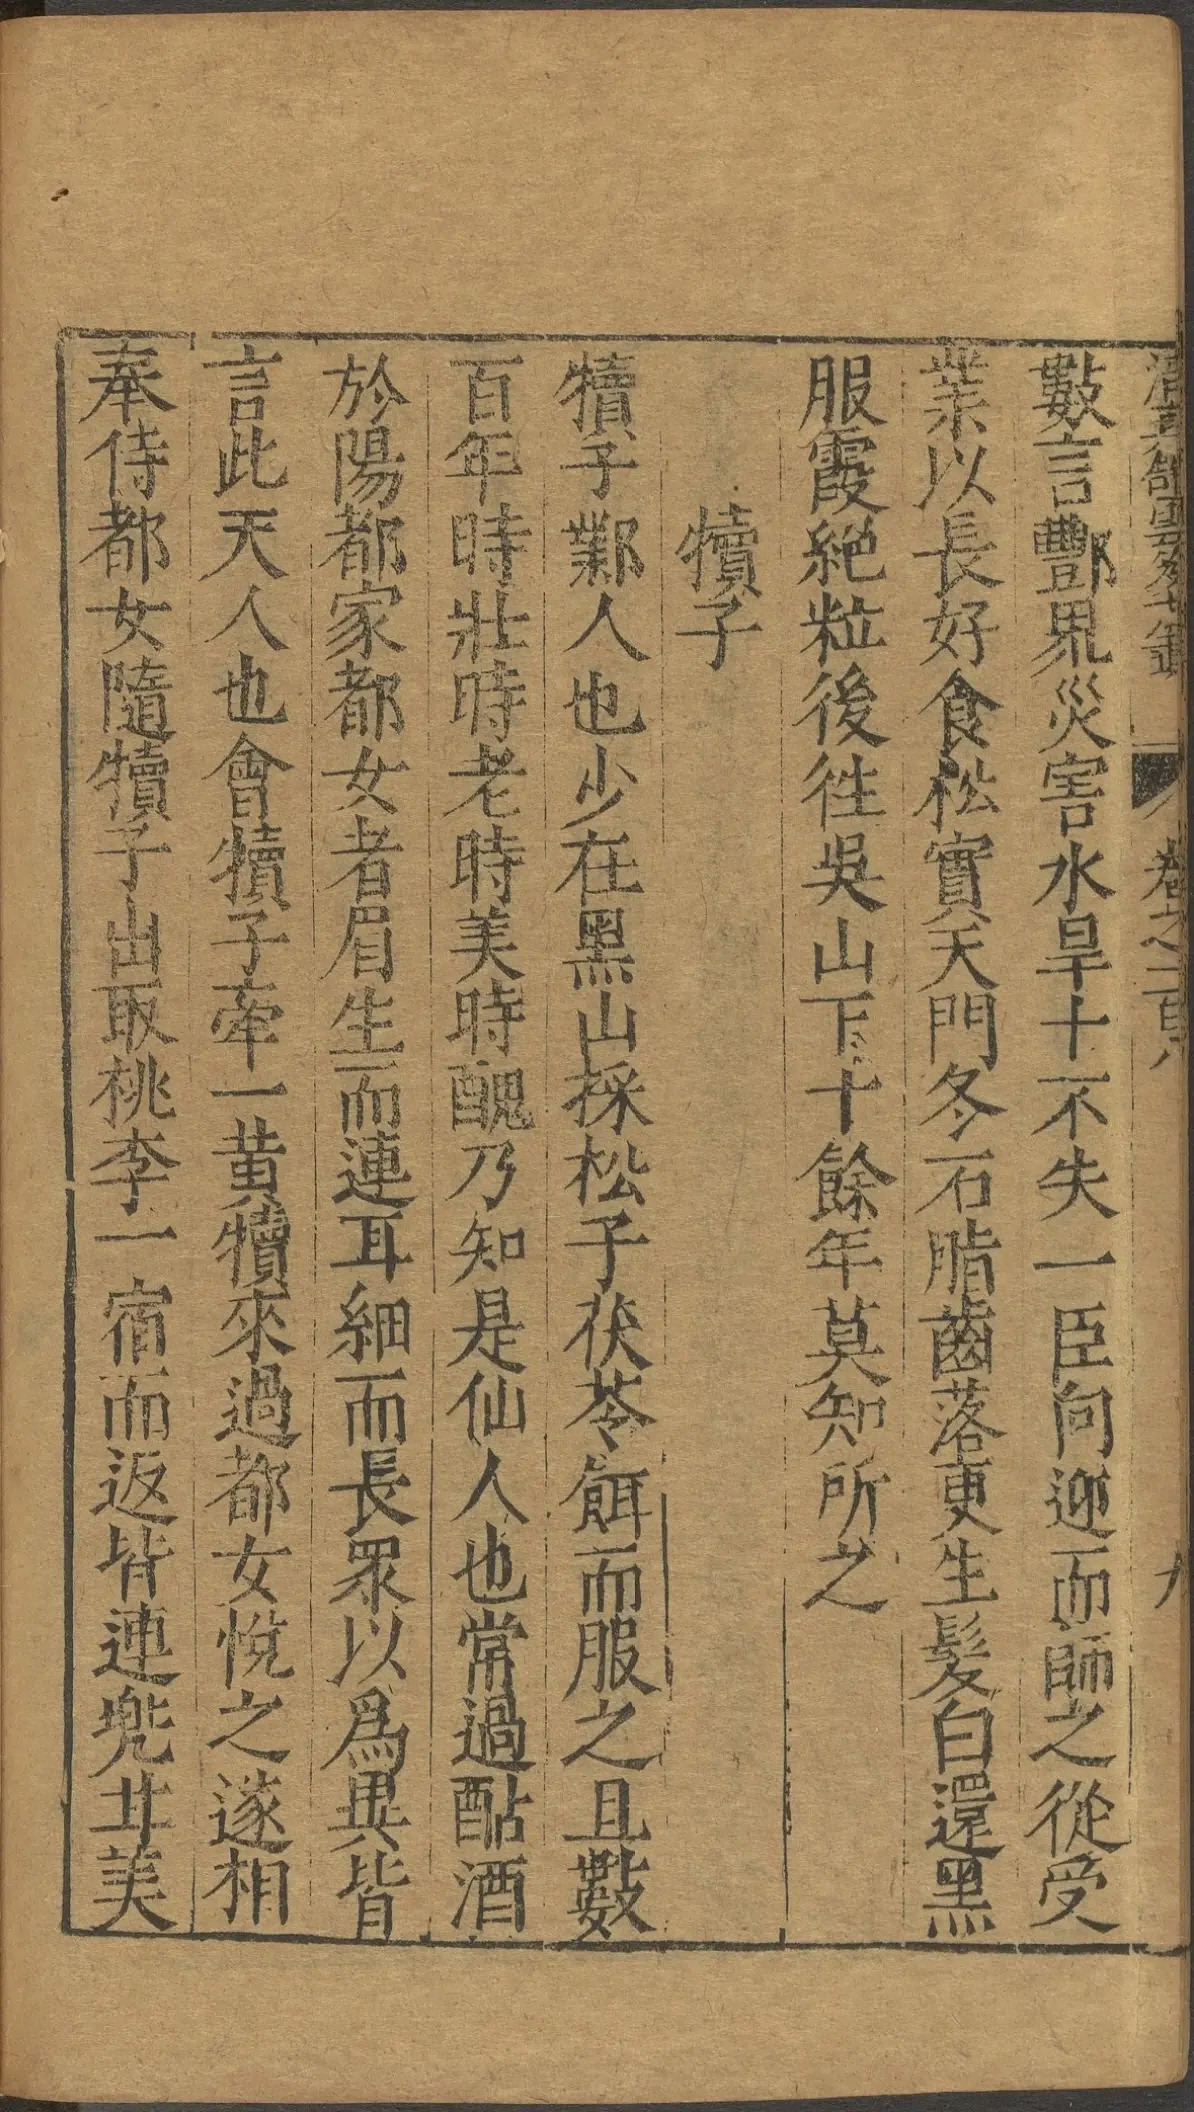 清真館雲笈七籤 卷之一百八 九
數言酆界災害水旱十不失一臣向迎而師之從受
業以長好食松實天門冬石脂齒落更生髮白還黑
服霞絕粒後徃吳山下十餘年莫知所之
犢子
犢子鄴人也少在黑山採松子茯苓餌而服之且數
百年時壯時老時美時醜乃知是仙人也常過酤酒
於陽都家都女者眉生而連耳細而長眾以爲異皆
言此天人也會犢子牽一黃犢來過都女悅之遂相
奉侍都女隨犢子出取桃李一宿而返皆連兠甘美